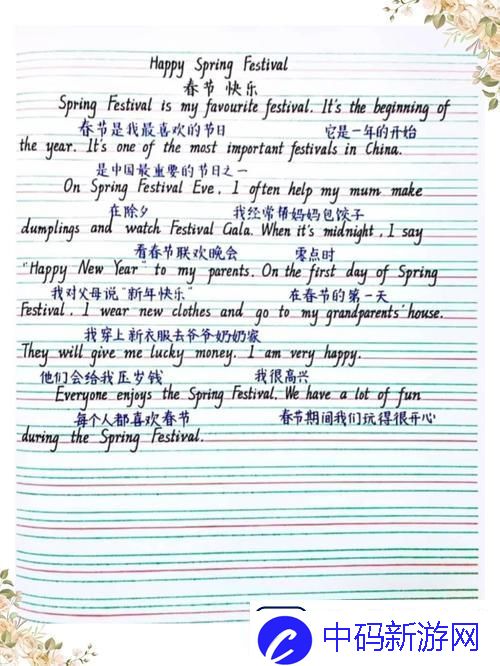 Happy Spring Festival
春节 快乐
Spring Festival is my favourite festival. It's the beginning of
春节是我最喜欢的节日 它是一年的开始
the year. It's one of the most important festivals in China.
是中国最重要的节日之一
On Spring Festival Eve, I often help my mum make
在除夕 我经常帮妈妈包饺子
dumplings and watch Festival Gala. When it's midnight, I say
看春节联欢晚会 零点时
"Happy New Year" to my parents. On the first day of Spring
我对父母说"新年快乐" 在春节的第一天
Festival, I wear new clothes and go to my grandparents' house.
我穿上新衣服去爷爷奶奶家
They will give me lucky money. I am very happy.
他们会给我压岁钱 我很高兴
Everyone enjoys the Spring Festival. We have a lot of fun
每个人都喜欢春节 春节期间我们玩得很开心
during the Spring Festival.
中码新游网